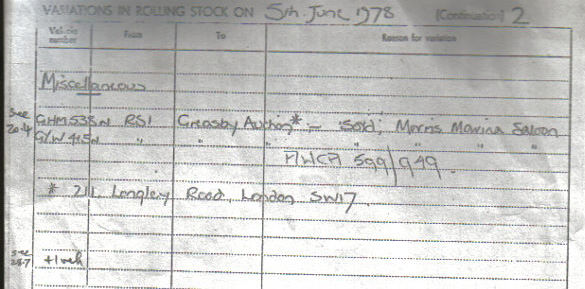 VARIATIONS IN ROLLING STOCK ON 5th June 1978 (Continuation) 2
Vehicle number From To Reason for variation
Miscellaneous
see 20-4 GHM 538N RS1 Greasby Auction* :- Sold; Morris Marina Saloon
" " " " " " "
PWCA 599/949.
* 211 Longley Road, London SW17
see 28-7 +1 veh